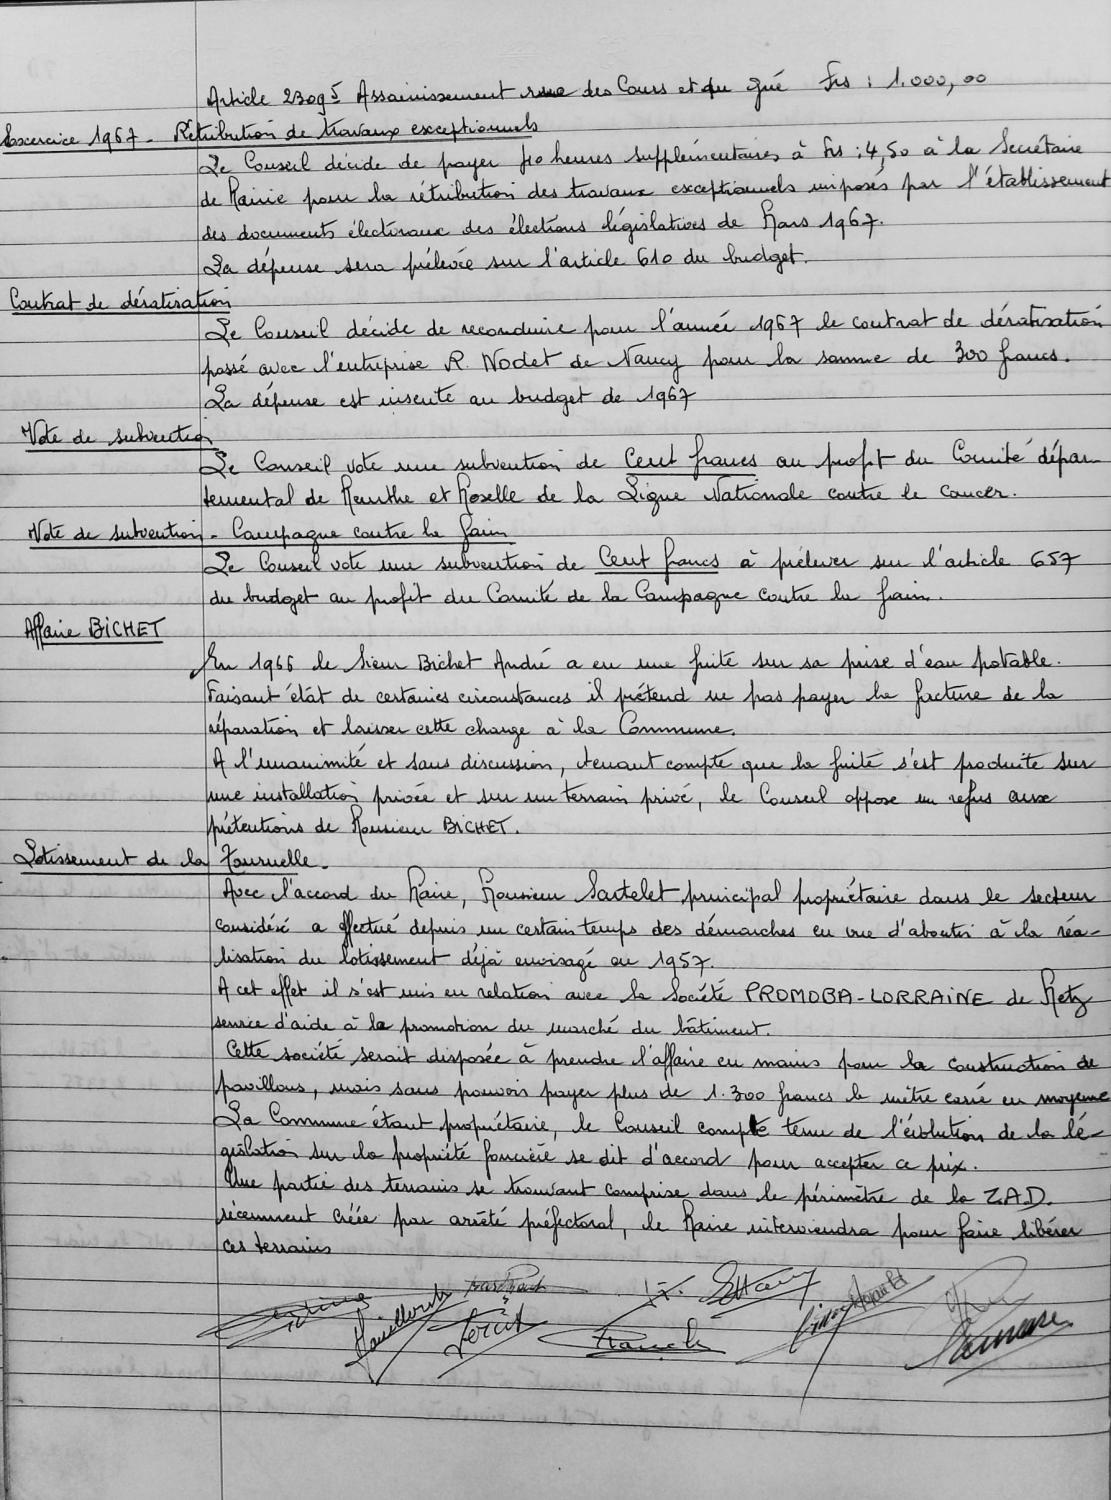 Article 230g5 Assainissement rue des Cours et du Gué Frs : 1.000,00
Excercice 1967 - Rétribution de travaux exceptionnels
Le Conseil décide de payer heures supplémentaires à Frs : 4,50 à la Secrétaire
de Mairie pour la rétribution des travaux exceptionnels imposés par l'établissement
des documents électoraux des élections législatives de Mars 1967.
La dépense sera prélevée sur l'article 610 du budget.
Contrat de dératisation
Le Conseil décide de reconduire pour l'année 1967 le contrat de dératisation
passé avec l'entreprise R. Nodet de Nancy pour la somme de 300 francs.
La dépense est inscrite au budget de 1967
Vote de subvention
Le Conseil vote une subvention de Cent francs au profit du Comité dépar-
temental de Meurthe et Moselle de la Ligue Nationale contre le cancer.
Vote de subvention - Campagne contre la faim
Le Conseil vote une subvention de Cent francs à prélever sur l'article 657
du budget au profit du Comité de la Campagne contre la faim.
Affaire BICHET
En 1966 le Sieur Bichet André a eu une fuite sur sa prise d'eau potable.
Faisant état de certaines circonstances il prétend ne pas payer la facture de la
réparation et laisser cette charge à la Commune.
A l'unanimité et sans discussion, tenant compte que la fuite s'est produite sur
une installation privée et sur un terrain privé, le Conseil oppose un refus aux
prétentions de Monsieur BICHET.
Lotissement de la Tournelle.
Avec l'accord du Maire, Monsieur Sartelet principal propriétaire dans le secteur
considéré a effectué depuis un certain temps des démarches en vue d'aboutir à la réa-
lisation du lotissement déjà envisagé en 1957.
A cet effet il s'est mis en relation avec la Société PROMOBA-LORRAINE de Metz
service d'aide à la promotion du marché du bâtiment.
Cette société serait disposée à prendre l'affaire en mains pour la construction de
pavillons, mais sans pouvoir payer plus de 1.300 francs le mètre carré en moyenne
La Commune étant propriétaire, le Conseil compte tenu de l'évolution de la lé-
gislation sur la propriété foncière se dit d'accord pour accepter ce prix.
Une partie des terrains se trouvant comprise dans le périmètre de la Z.A.D.
récemment créée par arrêté préfectoral, le Maire interviendra pour faire libérer
ces terrains